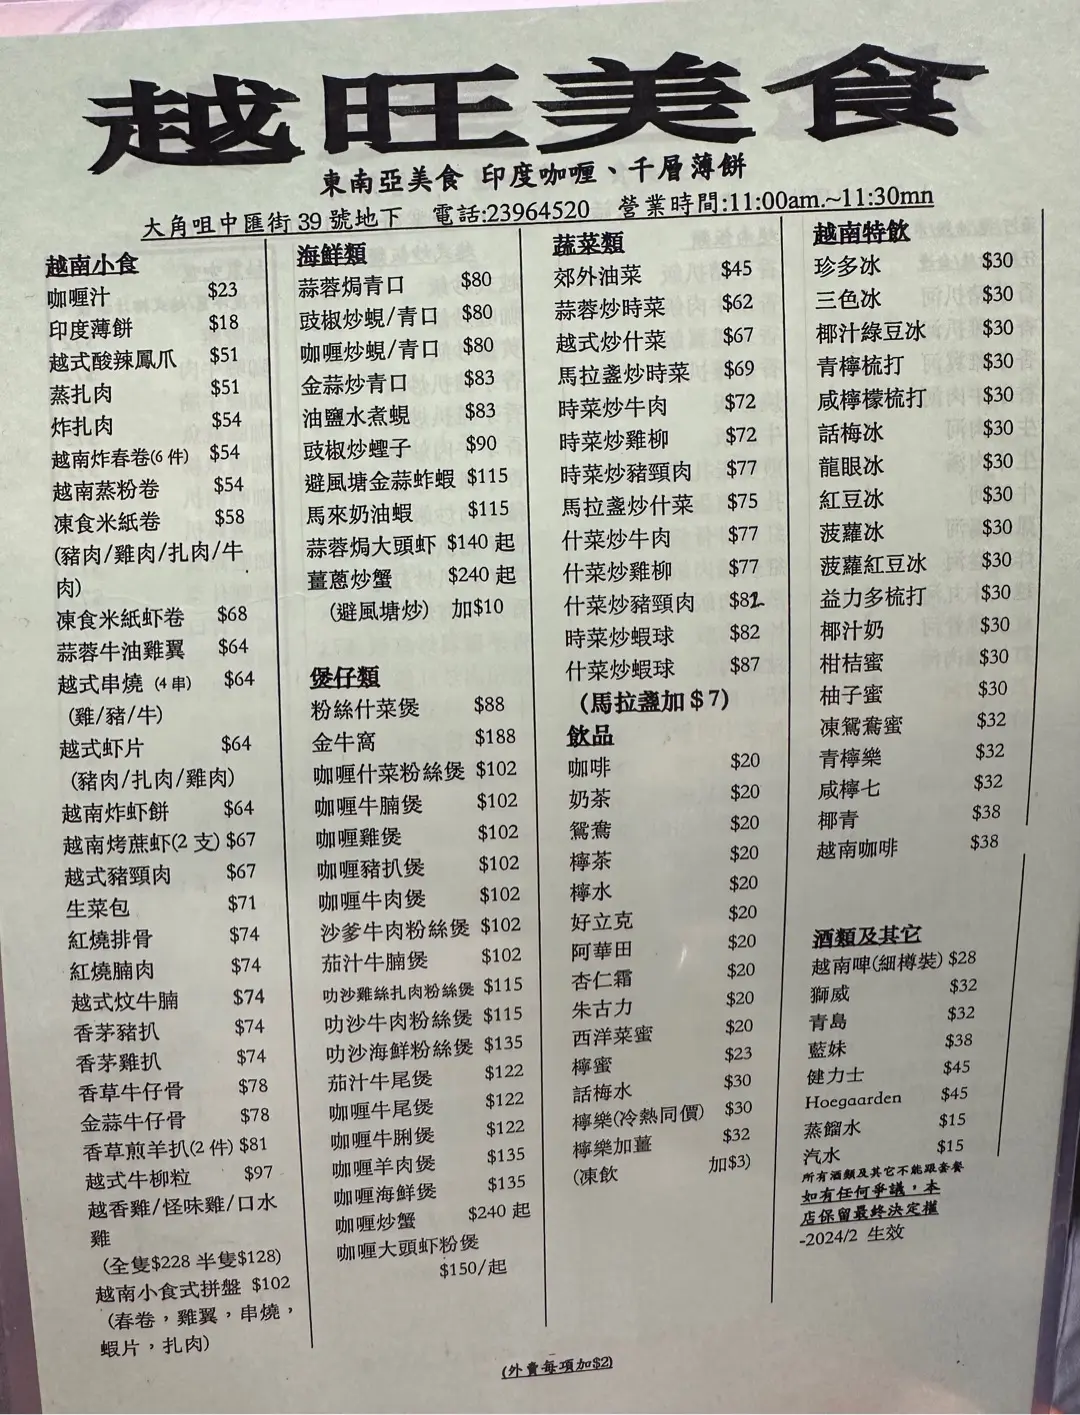 越旺美食
東南亞美食 印度咖喱、千層薄餅
大角咀中匯街 39 號地下 電話:23964520 營業時間:11:00am.~11:30mn
越南小食
咖喱汁 $23
印度薄餅 $18
越式酸辣鳳爪 $51
蒸扎肉 $51
炸扎肉 $54
越南炸春卷(6 件) $54
越南蒸粉卷 $54
凍食米紙卷 $58
(豬肉/雞肉/扎肉/牛
肉)
凍食米紙虾卷 $68
蒜蓉牛油雞翼 $64
越式串燒 (4 串) $64
(雞/豬/牛)
越式虾片 $64
(豬肉/扎肉/雞肉)
越南炸虾餅 $64
越南烤蔗虾(2 支) $67
越式豬頸肉 $67
生菜包 $71
紅燒排骨 $74
紅燒腩肉 $74
越式炆牛腩 $74
香茅豬扒 $74
香茅雞扒 $74
香草牛仔骨 $78
金蒜牛仔骨 $78
香草煎羊扒(2 件) $81
越式牛柳粒 $97
越香雞/怪味雞/口水
雞
(全隻$228 半隻$128)
越南小食式拼盤 $102
(春卷，雞翼，串燒，
蝦片，扎肉)
海鮮類
蒜蓉焗青口 $80
豉椒炒蜆/青口 $80
咖喱炒蜆/青口 $80
金蒜炒青口 $83
油鹽水煮蜆 $83
豉椒炒蟶子 $90
避風塘金蒜蚱蝦 $115
馬來奶油蝦 $115
蒜蓉焗大頭虾 $140 起
薑蔥炒蟹 $240 起
(避風塘炒) 加$10
煲仔類
粉絲什菜煲 $88
金牛窩 $188
咖喱什菜粉絲煲 $102
咖喱牛腩煲 $102
咖喱雞煲 $102
咖喱豬扒煲 $102
咖喱牛肉煲 $102
沙爹牛肉粉絲煲 $102
茄汁牛腩煲 $102
叻沙雞絲扎肉粉絲煲 $115
叻沙牛肉粉絲煲 $115
叻沙海鮮粉絲煲 $135
茄汁牛尾煲 $122
咖喱牛尾煲 $122
咖喱牛脷煲 $122
咖喱羊肉煲 $135
咖喱海鮮煲 $135
咖喱炒蟹 $240 起
咖喱大頭虾粉煲
$150/起
蔬菜類
郊外油菜 $45
蒜蓉炒時菜 $62
越式炒什菜 $67
馬拉盞炒時菜 $69
時菜炒牛肉 $72
時菜炒雞柳 $72
時菜炒豬頸肉 $77
馬拉盞炒什菜 $75
什菜炒牛肉 $77
什菜炒雞柳 $77
什菜炒豬頸肉 $82
時菜炒蝦球 $82
什菜炒蝦球 $87
(馬拉盞加＄7)
飲品
咖啡 $20
奶茶 $20
鴛鴦 $20
檸茶 $20
檸水 $20
好立克 $20
阿華田 $20
杏仁霜 $20
朱古力 $20
西洋菜蜜 $20
檸蜜 $23
話梅水 $30
檸樂(冷熱同價) $30
檸樂加薑 $32
(凍飲 加$3)
越南特飲
珍多冰 $30
三色冰 $30
椰汁綠豆冰 $30
青檸梳打 $30
咸檸檬梳打 $30
話梅冰 $30
龍眼冰 $30
紅豆冰 $30
菠蘿冰 $30
菠蘿紅豆冰 $30
益力多梳打 $30
椰汁奶 $30
柑桔蜜 $30
柚子蜜 $30
凍鴛鴦蜜 $32
青檸樂 $32
咸檸七 $32
椰青 $38
越南咖啡 $38
酒類及其它
越南啤(細樽裝) $28
獅威 $32
青島 $32
藍妹 $38
健力士 $45
Hoegaarden $45
蒸餾水 $15
汽水 $15
所有酒類及其它不能跟套餐
如有任何爭議，本
店保留最終決定權
-2024/2 生效
(外賣每項加$2)